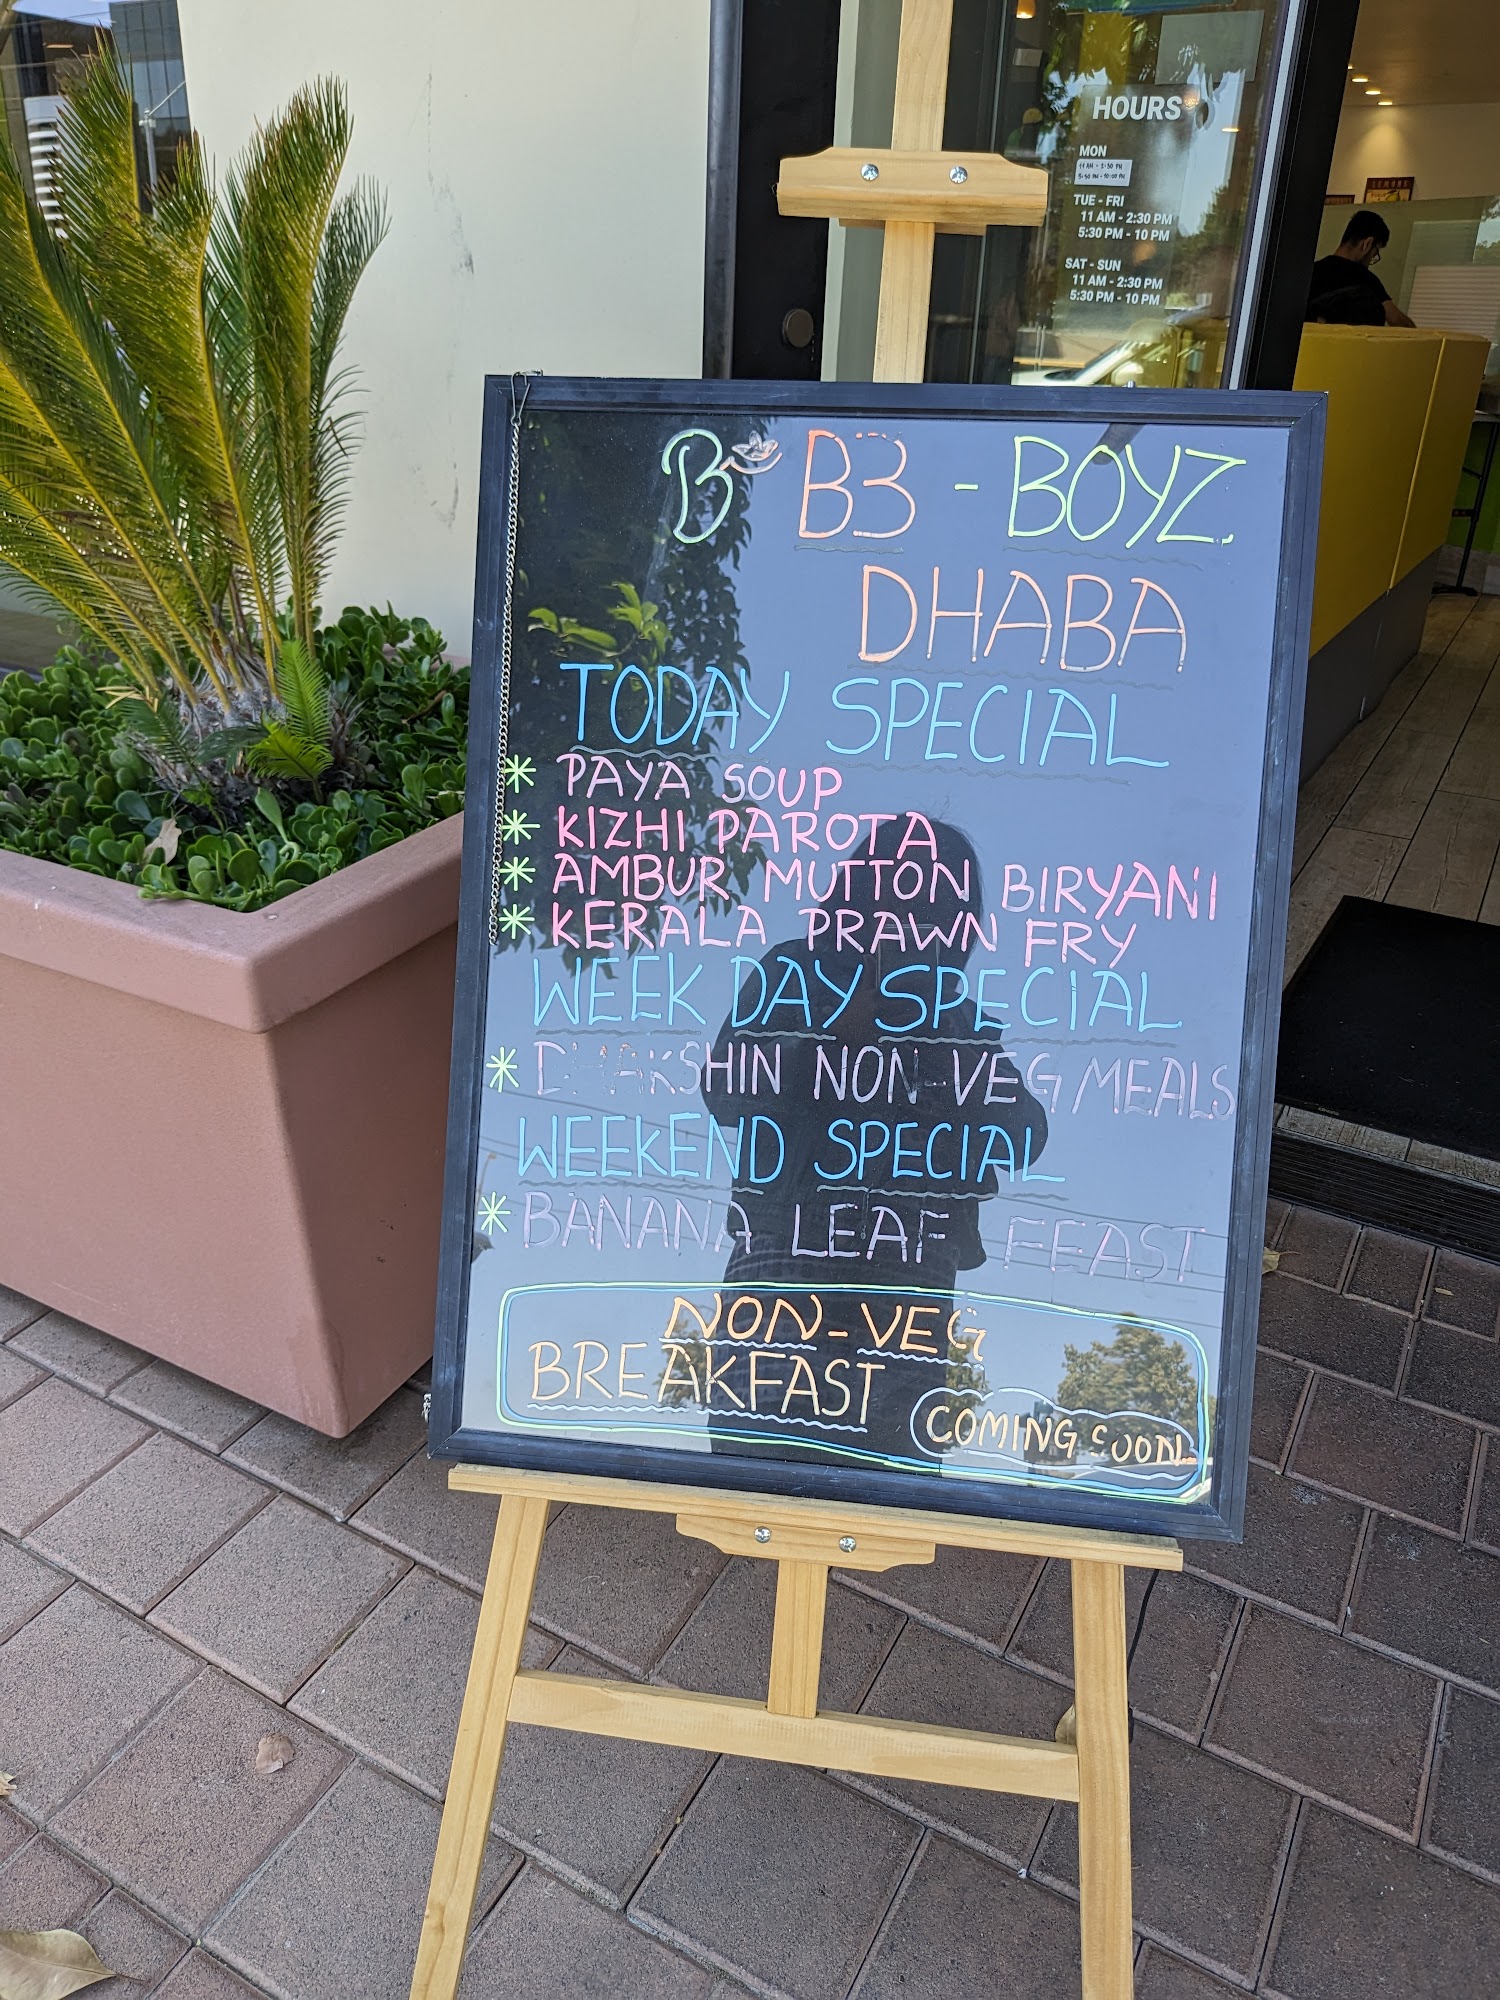 HOURS
MON
11 AM - 2:30 PM
5:30 PM - 10:00 PM
TUE - FRI
11 AM - 2:30 PM
5:30 PM - 10 PM
SAT - SUN
11 AM - 2:30 PM
5:30 PM - 10 PM
B B3 - BOYZ
DHABA
TODAY SPECIAL
* PAYA SOUP
* KIZHI PAROTA
* AMBUR MUTTON BIRYANI
* KERALA PRAWN FRY
WEEK DAY SPECIAL
* DHAKSHIN NON-VEG MEALS
WEEKEND SPECIAL
* BANANA LEAF FEAST
NON-VEG
BREAKFAST
COMING SOON